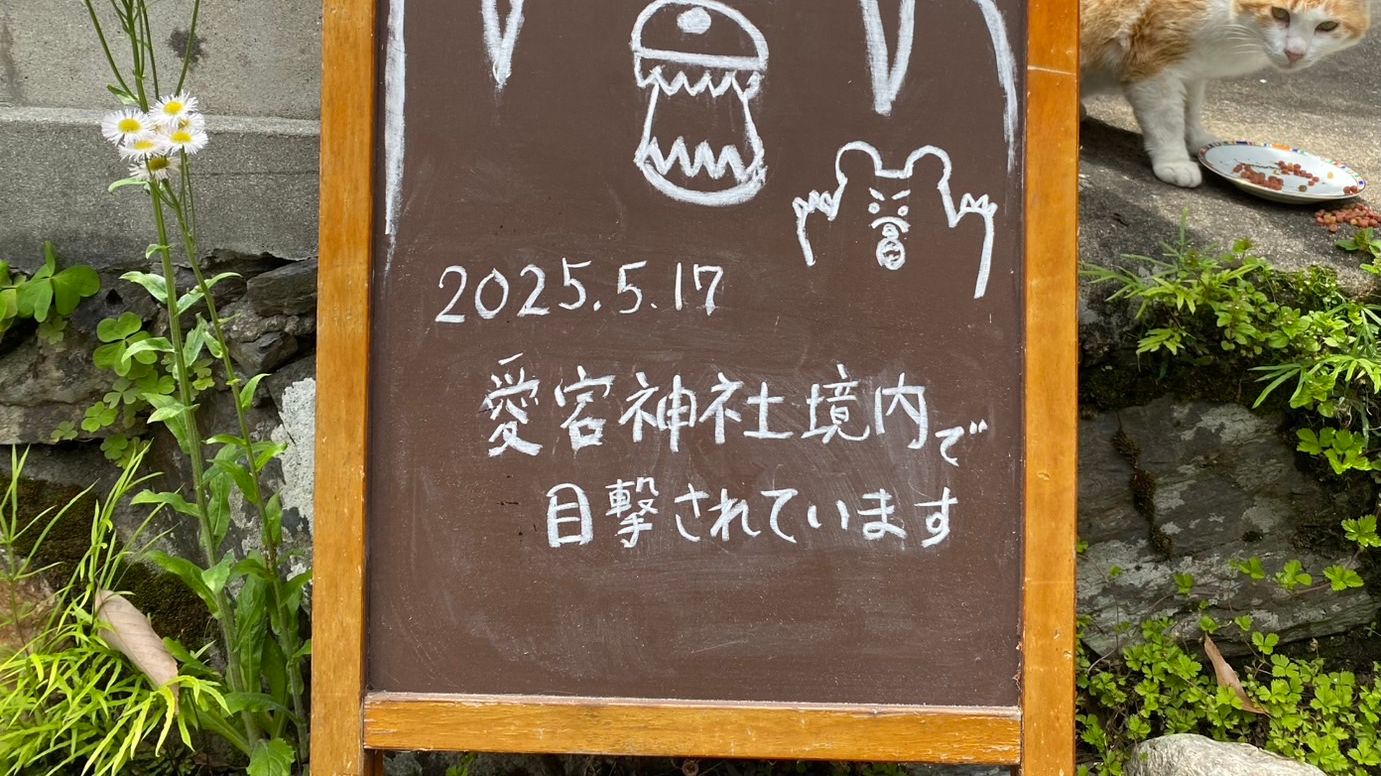 2025.5.17
愛宕神社境内で
目撃されています